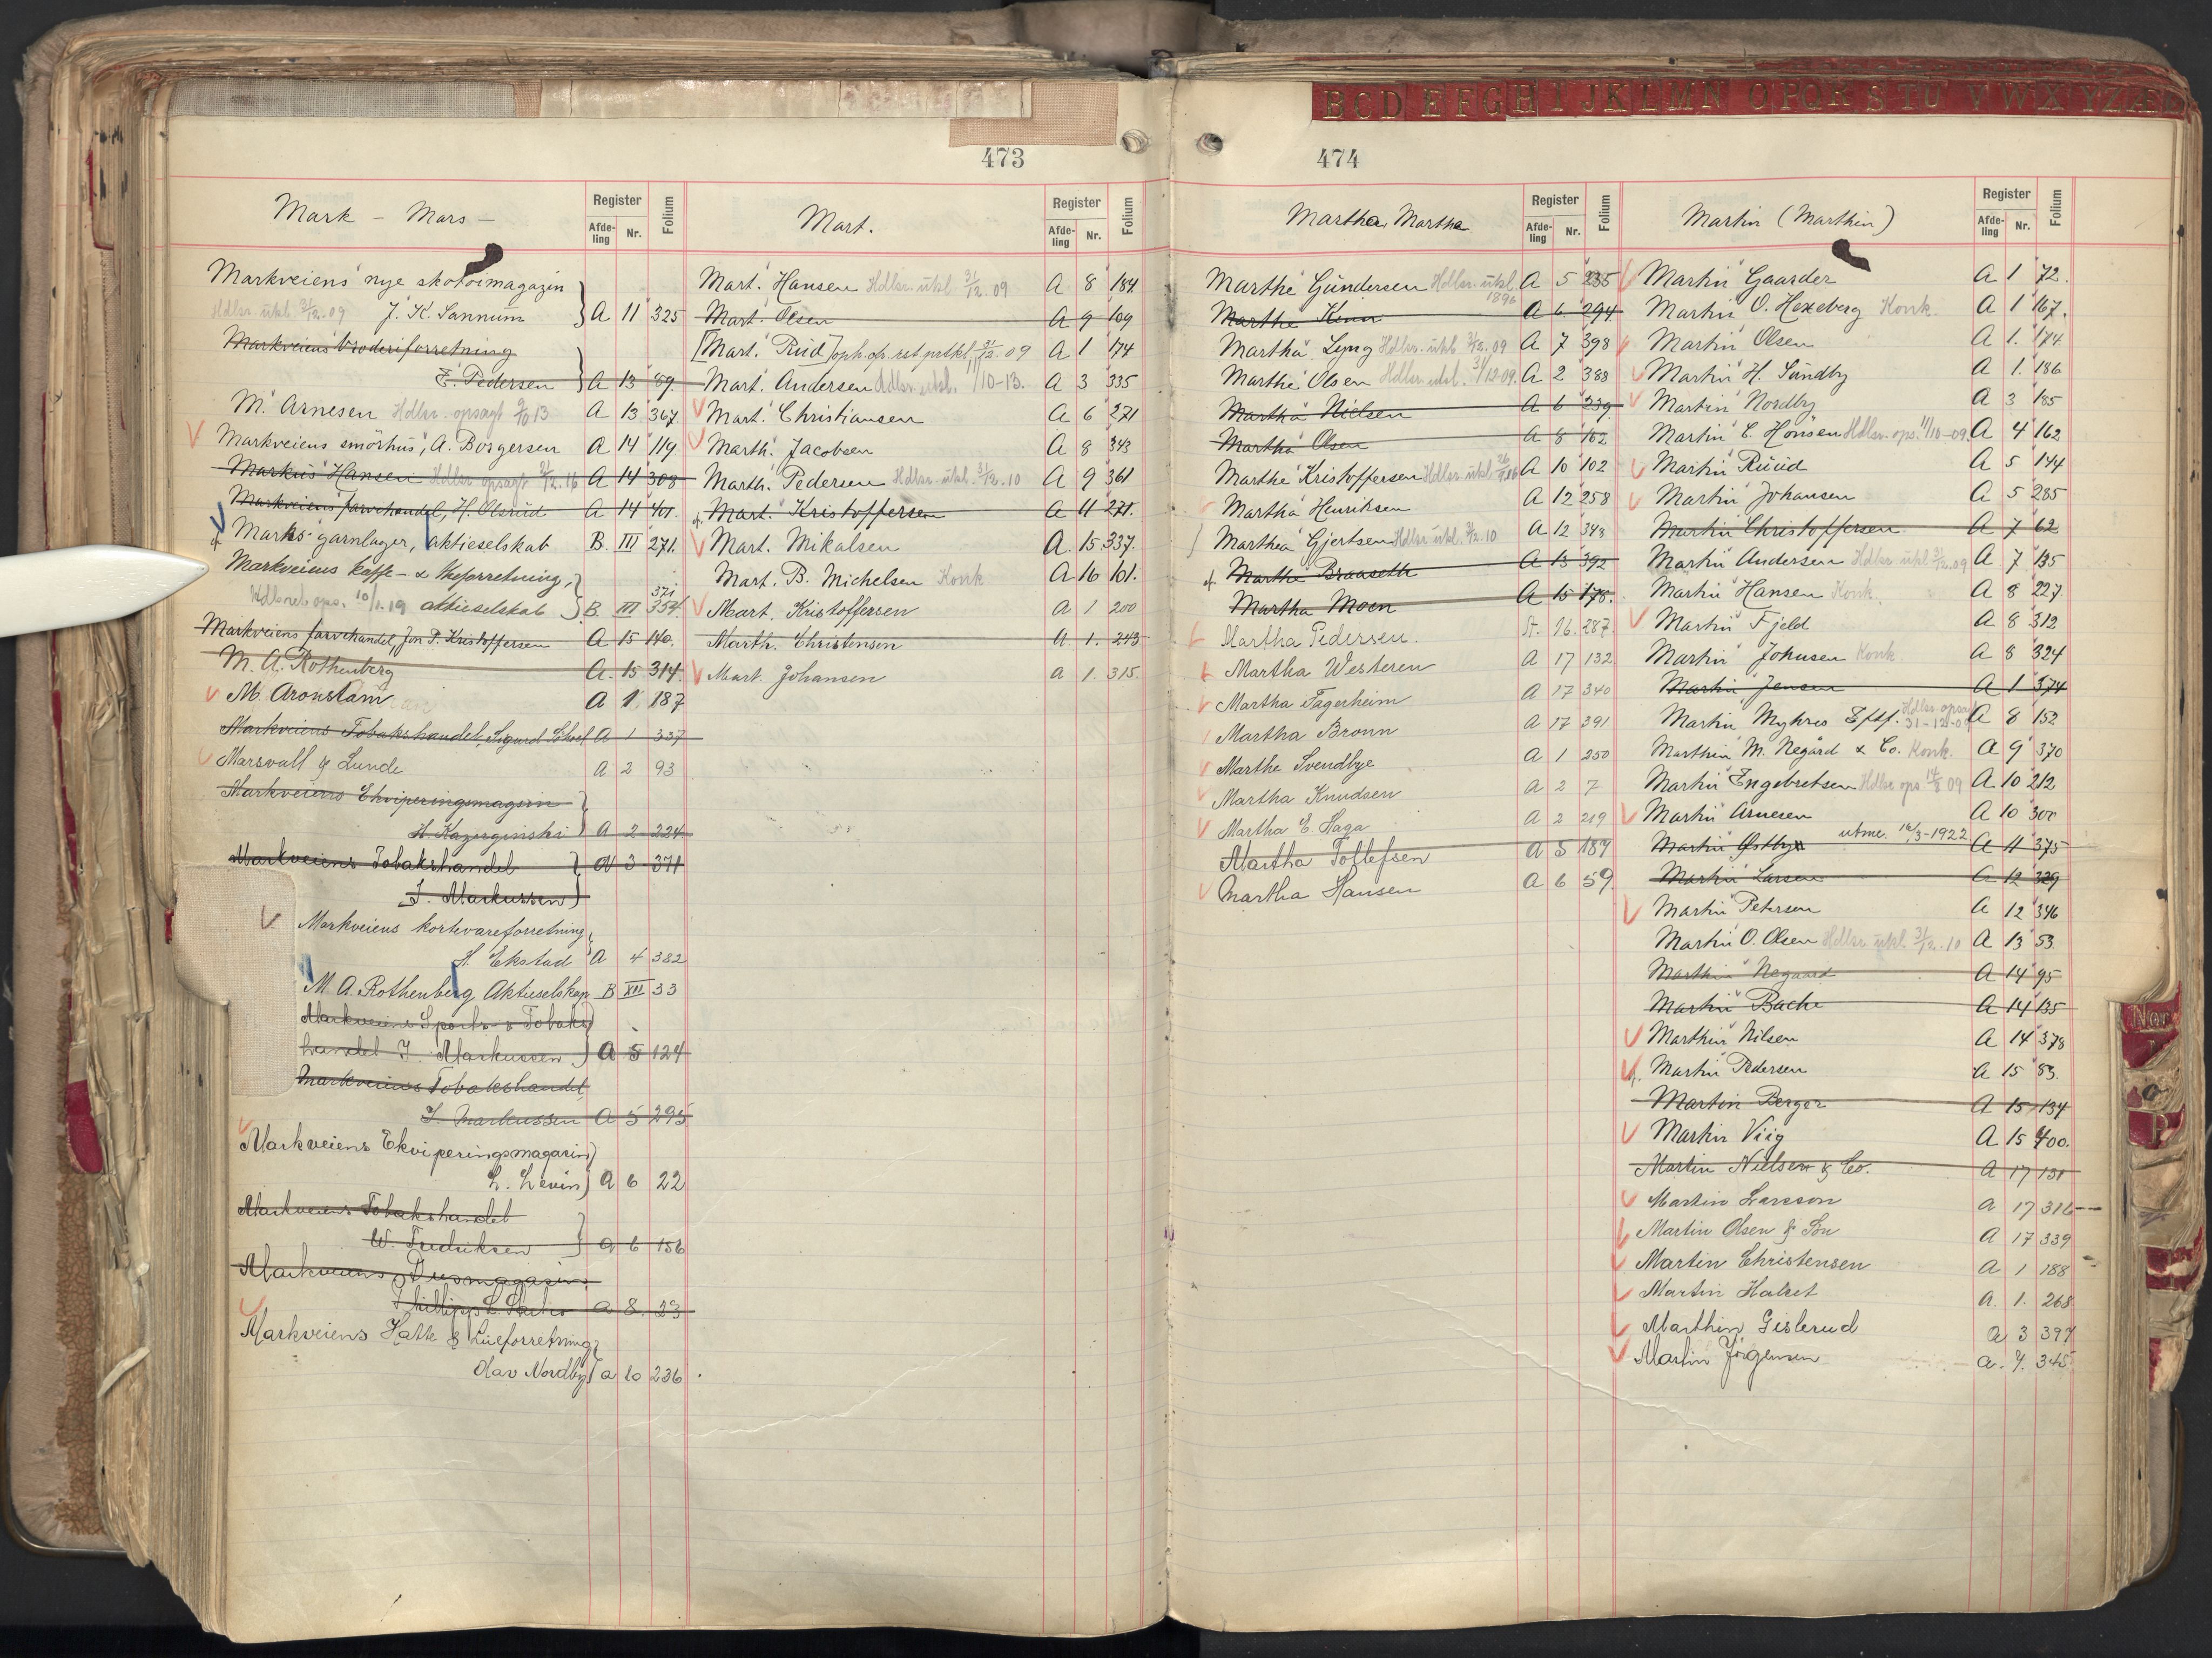 BCD EFGH I JK L M N O PQ R S T U V W X Y Z Æ
473
Mark - Mars -
Register
Afde-ling Nr. Folium
Markveiens nye skotøimagazin
Hdlsr. utkl. 31/12.09 J. K. Sannum A 11 325
Markveiens broderiforretning
E. Pedersen A 13 89
M. Arnesen Hdlsr. opsagt 9/10 13 A 13 367
Markveiens smørhus, A. Borgersen A 14 119
Markus Hansen Hdlsr opsagt A 14 308
Markveiens farvehandel, H. Olsrud A 14 401
Marks garnlager, aktieselskab B. III 271.
Markveiens kaffe- & theforretning,
371
Hdlsrets ops. 10/1.19 aktieselskab B. III 354
Markveiens farvehandel, Jon P. Kristoffersen A 15 140.
M. A. Rothenberg A. 15 314.
M. Aronstam A 1 187
Markveiens Tobakshandel, Sigurd A 1 337
Marsvall & Lunde A 2 93
Markveiens Ekviperingsmagasin
A 2 224
Markveiens Tobakshandel A 3 371
J. Markussen
Markveiens kortevareforretning,
H. Ekstad A 4 382
M. A. Rothenberg Aktieselskap B XII 33
Markveiens Sports & Tobaks
handel J. Markussen A 5 124
Markveiens Tobakshandel,
J. Markussen A 5 295
Markveiens Ekviperingsmagasin
L. Levin A 6 22
Markveiens Tobakshandel
W. Fredriksen a 6 156
Markveiens
a 8. 23
Markveiens Hatte & Lueforretning
Olav Nordby a 10 236
Mart.
Register
Afde-ling Nr. Folium
Mart. Hansen Hdlsr. utkl. 31/12.09 A 8 184
Mart. Olsen A 9 109
[Mart. Rud] oph. op. rst. prtkl. 31/12.09 A 1 174
Mart. Andersen Hdlsr. utkl. 11/10-13. A 3 335
Mart. Christiansen A 6 271
Marth. Jacobsen A 8 343
Marth. Pedersen Hdlsr. utkl. 31/12.10 A 9 361
Mart. Kristoffersen A 11 271.
Mart. Mikalsen A. 15 337.
Mart. B. Michelsen Konk A 16 101.
Mart. Kristoffersen A 1 200
Marth. Christensen A. 1. 243
Mart. Johansen a 1. 315.
474
Martha, Marthe
Register
Afde-ling Nr. Folium
Marthe Gundersen Hdlsr. utkl. 1896 A 5 235
Marthe A 6 294
Martha Lyng Hdlsr. utkl. 31/12.09 A 7 398
Marthe Olsen Hdlsr. utkl. 31/12 09. A 2 388
Martha Nielsen A 6 239
Martha Olsen A 8 162
Marthe Kristoffersen Hdlsr. utkl. A 10 102
Martha Henriksen A 12 258
Marthea Gjertsen Hdlsr. utkl. 31/12.10 A 12 343
Marthe Braaseth A 13 392
Martha Moen A 15 178.
Martha Pedersen. A. 16. 287.
Martha Westeren A 17 132
Martha Fagerheim A 17 340
Martha Bronn A 17 391
Marthe Svendbye A 1 250
Martha Knudsen A 2 7
Martha E. Haga A 2 219
Martha Tollefsen A 5 187
Martha Hansen A 6 59
Martin (Marthin)
Register
Afde-ling Nr. Folium
Martin Gaarder A 1 72.
Martin O. Hexeberg Konk A 1 167.
Martin Olsen A 1. 174
Martin H. Sundby A 1. 186
Martin Nordby A 3 185
Martin C. Hønsen Hdlsr. ops. 11/10-09 A 4 162
Martin Ruud A 5 144
Martin Johansen A 5 285
Martin Christoffersen A 7 62
Martin Andersen Hdlsr utkl 31/12.09 A 7 135
Martin Hansen Konk. A 8 227
Martin Fjeld A 8 312
Martin Johnsen Konk A 8 324
Martin Jensen A 1 374
Martin Myhres Eftf. Hdlsr opsagt 31-12-0 A 8 152
Marthin M. Negård & Co. Konk. A 9 370
Martin Engebretsen Hdlsr ops 14/8 09 A 10 212
Martin Arnesen A 10 300
Martin Østbye utme. 16/3-1922 A 11 375
Martin Larsen A 12 329
Martin Petersen A 12 346
Martin O. Olsen Hdlsr. utkl. 31/12.10 A 13 53
Marthin Negaard A 14 95
Martin Bache A 14 135
Marthin Nilsen A 14 378
Martin Pedersen A 15 83.
Martin Berger A 15 134
Martin Viig A 15 400.
Martin Nielsen & Co. A 17 131
Martin Larsson A 17 316
Martin Olsen & Søn A 17 339
Martin Christensen A 1 188
Martin Halset A. 1. 268
Marthin Gislerud a 3 397
Martin Jørgensen a. 7. 345
Nor
O
P